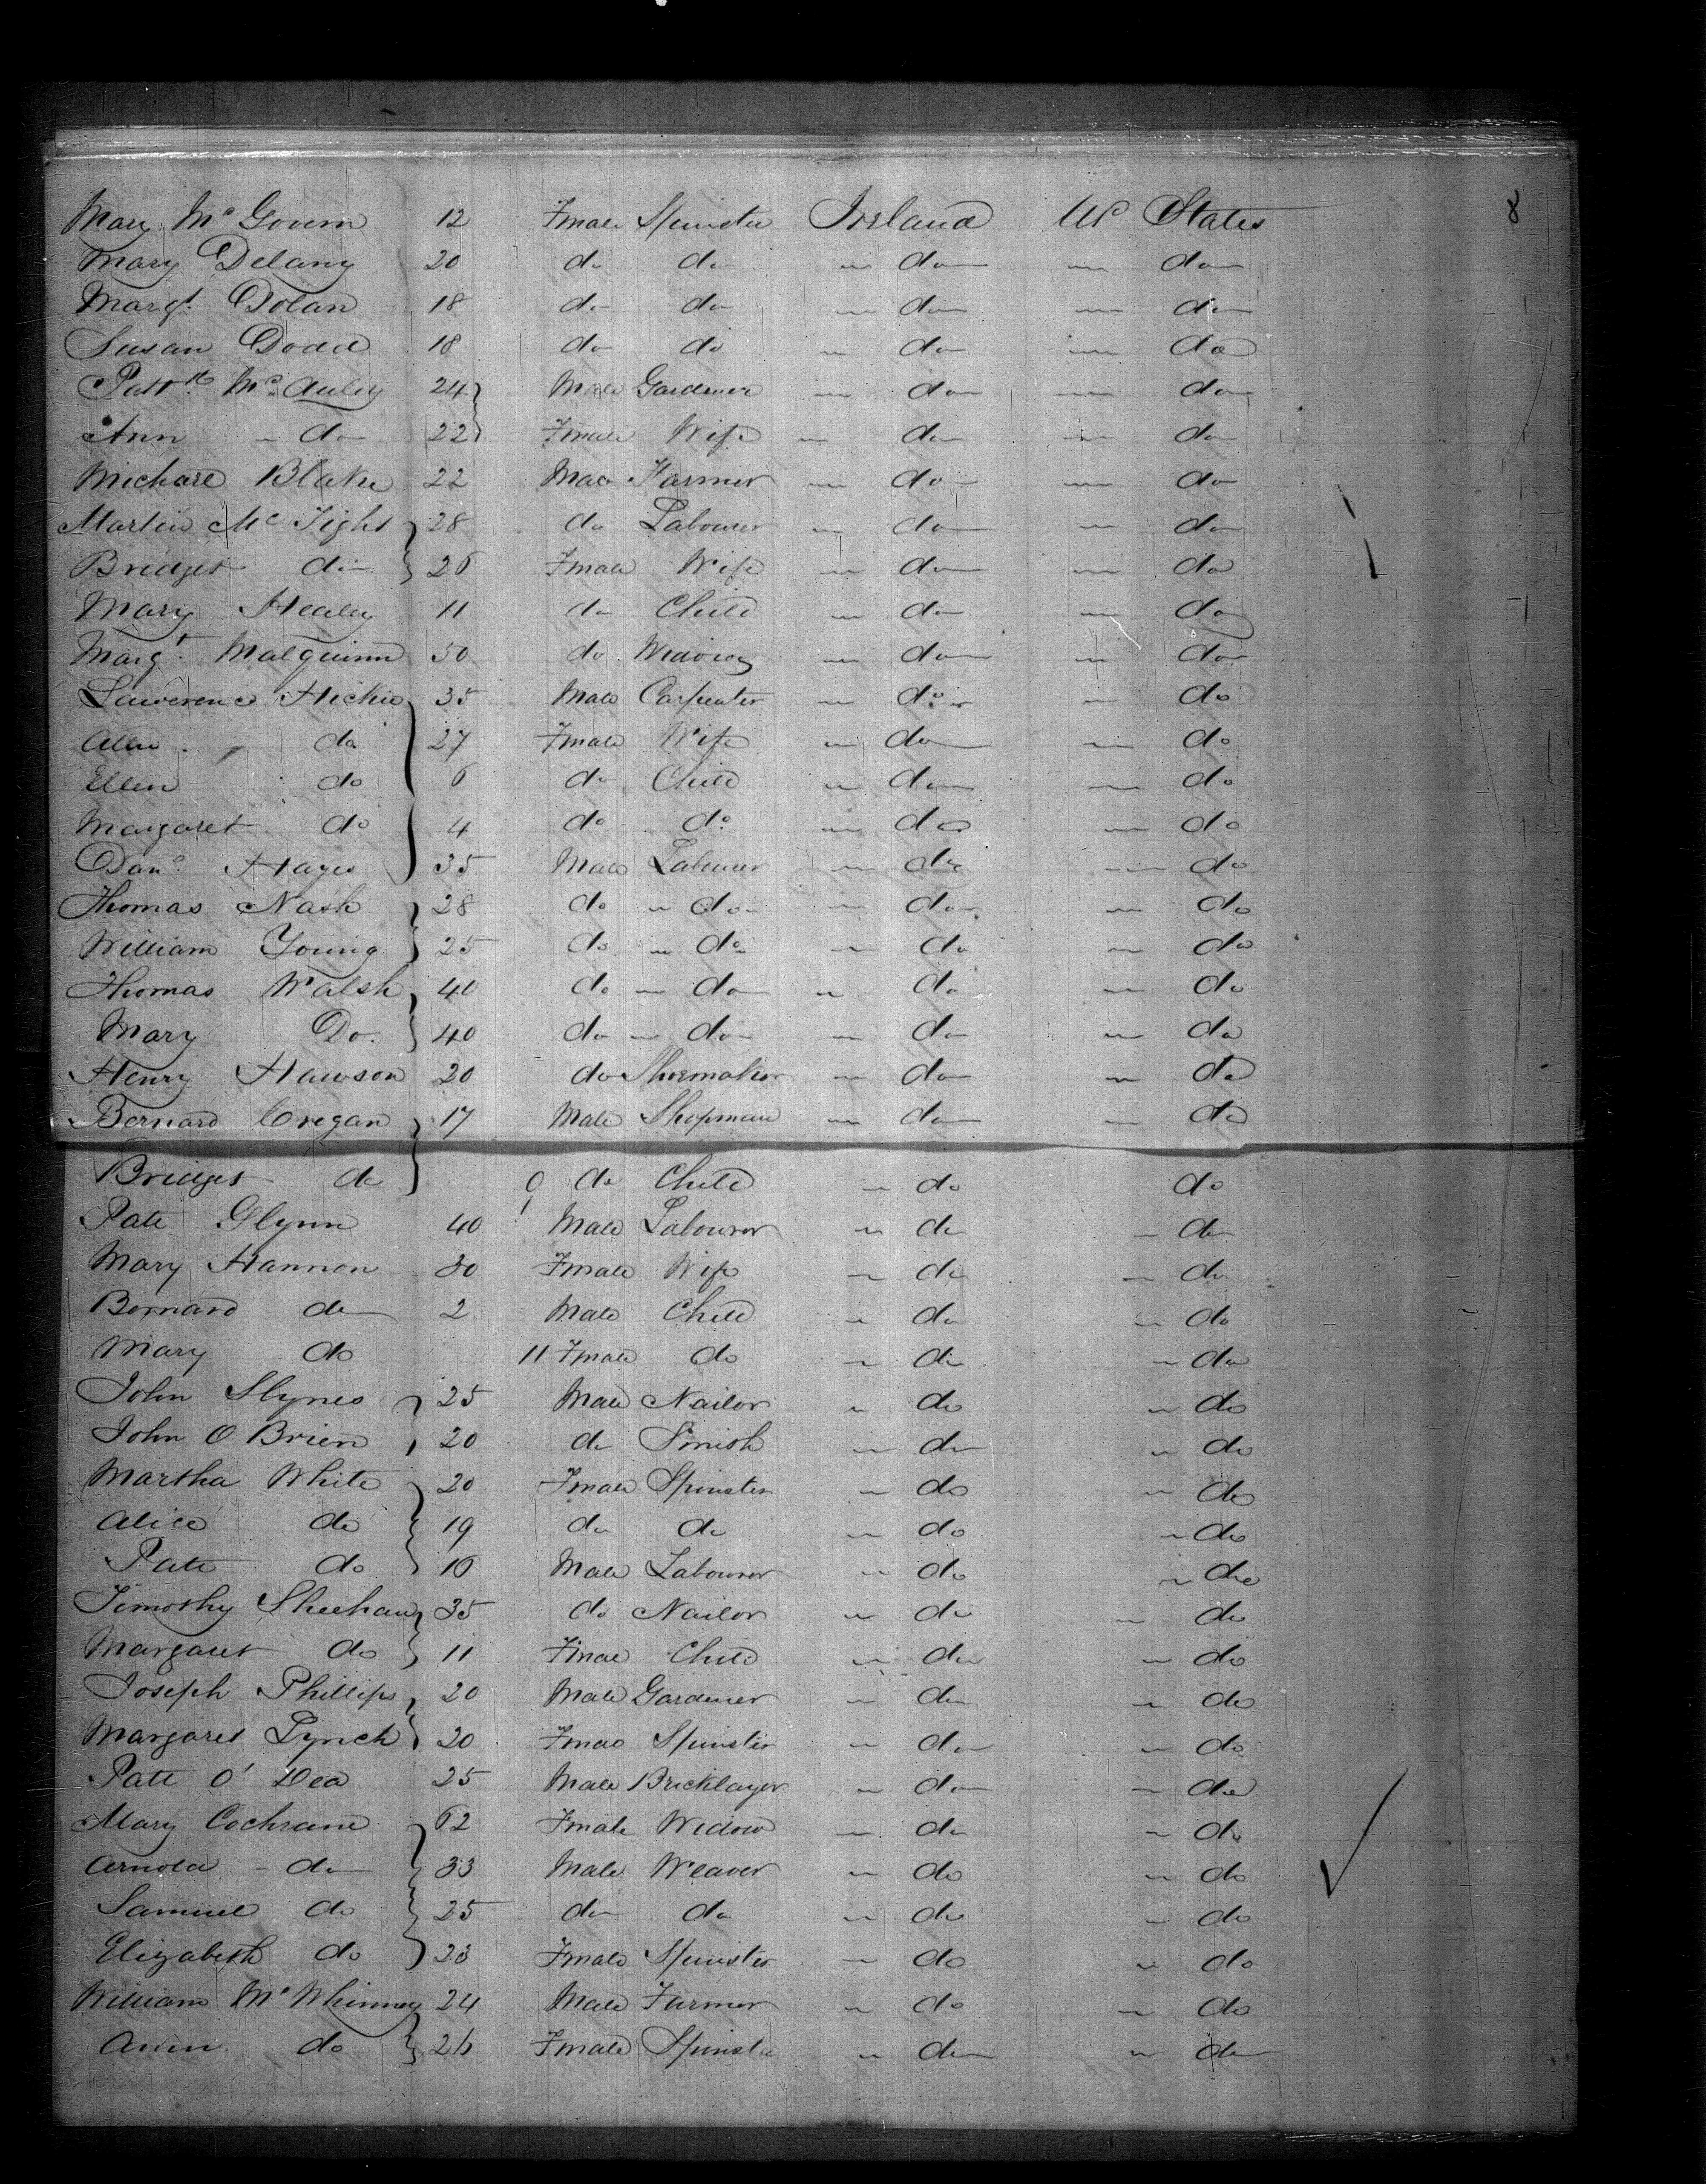 Mary McGovern 12 Fmale Spinster Ireland U States 8
Mary Delany 20 do do " do " do
Margt. Dolan 18 do do " do " do
Susan Dodd 18 do do " do " do
Patt McAuley 24 Male Gardener " do " do
Ann " do 22 Fmale Wife " do " do
Michael Blake 22 Male Farmer " do " do
Martin McTight 28 do Labourer " do " do
Bridget do 26 Fmale Wife " do " do
Mary Healey 11 do Child " do " do
Margt. Malquinn 50 do " do " do
Lawerence Hickie 35 Male Carpenter " do " do
do 27 Fmale Wife " do " do
Ellen do 6 do Child " do " do
Margaret do 4 do do " do " do
Danl. Hayes 35 Male Labourer " do " do
Thomas Nash 28 do " do " do " do
William Young 25 do " do " do " do
Thomas Walsh 40 do " do " do " do
Mary Do. 40 do " do " do " do
Henry Hawson 20 do Shoemaker " do " do
Bernard Cregan 17 Male Shopman " do " do
Bridget do do Child " do do
Patt Glynn 40 Male Labourer " do " do
Mary Hannon 30 Fmale Wife " do " do
Bernard do 2 Male Child " do " do
Mary do 11 Fmale do " do " do
John Slynes 25 Male Nailor " do " do
John O Brien 20 do Smith " do " do
Martha White 20 Fmale Spinster " do " do
Alice do 19 do do " do " do
Patt do 16 Male Labourer " do " do
Timothy Sheehan 35 do Nailor " do " do
Margaret do 11 Fmale Child " do " do
Joseph Phillips 20 Male Gardener " do " do
Margaret Lynch 20 Fmale Spinster " do " do
Patt O' Dea 25 Male Bricklayer " do " do
Mary Cochrane 62 Fmale Widow " do " do
Arnold " do 33 Male Weaver " do " do
Samuel do 25 do do " do " do
Elizabeth do 23 Fmale Spinster " do " do
William McWhinney 24 Male Farmer " do " do
Ann do 26 Fmale Spinster " do " do